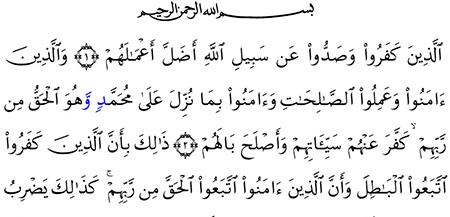 بسم الله الرحمن الرحيم
ٱلَّذِينَ كَفَرُوا۟ وَصَدُّوا۟ عَن سَبِيلِ ٱللَّهِ أَضَلَّ أَعْمَـٰلَهُمْ ﴿١﴾ وَٱلَّذِينَ
ءَامَنُوا۟ وَعَمِلُوا۟ ٱلصَّـٰلِحَـٰتِ وَءَامَنُوا۟ بِمَا نُزِّلَ عَلَىٰ مُحَمَّدٍ وَهُوَ ٱلْحَقُّ مِن
رَّبِّهِمْ ۙ كَفَّرَ عَنْهُمْ سَيِّـَٔاتِهِمْ وَأَصْلَحَ بَالَهُمْ ﴿٢﴾ ذَٰلِكَ بِأَنَّ ٱلَّذِينَ كَفَرُوا۟
ٱتَّبَعُوا۟ ٱلْبَـٰطِلَ وَأَنَّ ٱلَّذِينَ ءَامَنُوا۟ ٱتَّبَعُوا۟ ٱلْحَقَّ مِن رَّبِّهِمْ ۚ كَذَٰلِكَ يَضْرِبُ